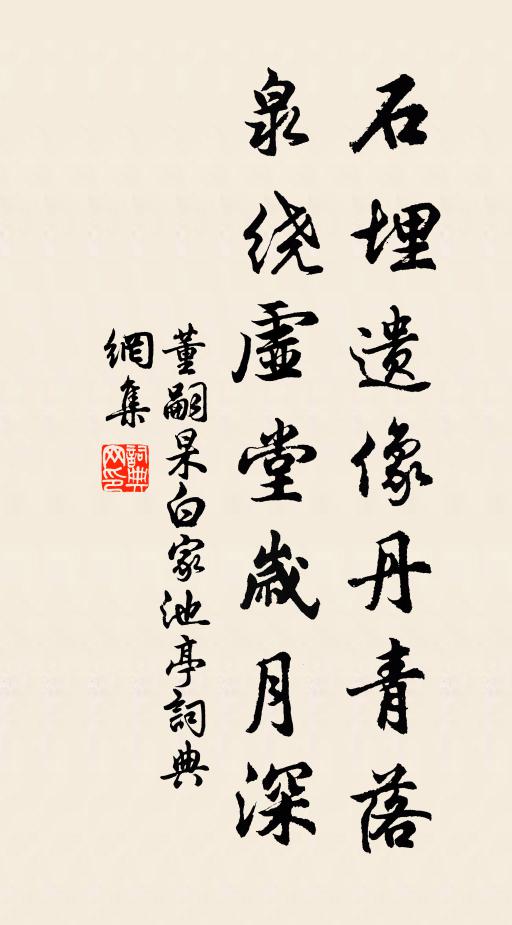 石埋遺像丹青落
泉绕虚堂歲月深
董嗣杲白家池亭詞典
網集
詞典网印